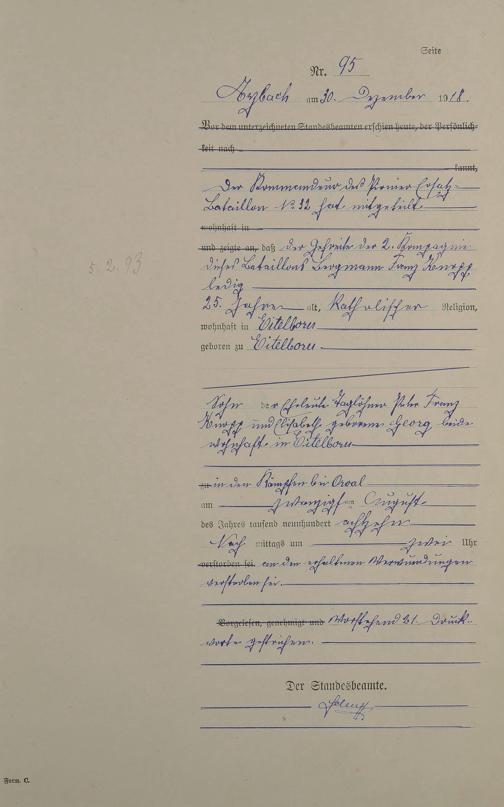 Seite
Nr. 95
Arzbach am 30. Dezember 1918.
Vor dem unterzeichneten Standesbeamten erschien heute, der Persönlich-
keit nach
kannt,
Der Kommandeur des Pionier Ersatz-
Bataillon No 32 hat mitgeteilt
wohnhaft in
und zeigte an, daß der Gefreite der 2. Kompagnie
5.2.93
dieses Bataillons Bergmann Franz Knopp
ledig
25 Jahre alt, Katholischer Religion,
wohnhaft in Eitelborn
geboren zu Eitelborn
Sohn der Eheleute Taglöhner Peter Franz
Knopp und Elisabeth geborene Georg beide
wohnhaft in Eitelborn
zu in den Kämpfen bei Orval
am zwanzigsten August
des Jahres tausend neunhundert achtzehn
Nach mittags um zwei Uhr
verstorben sei. an den erhaltenen Verwundungen
verstorben sei.
Vorgelesen, genehmigt und Vorstehend 21 Druck-
worte gestrichen.
Der Standesbeamte.
Form. C.